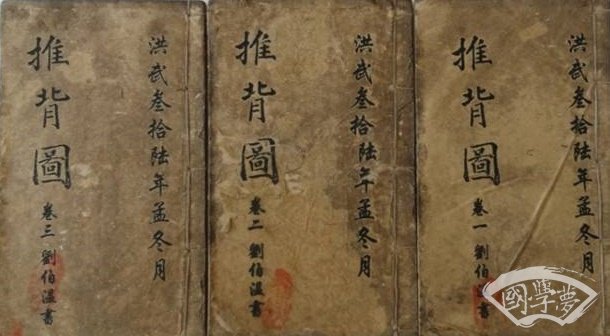 洪武叁拾陆年孟冬月
推背圖
卷一 劉伯溫書
洪武叁拾陆年孟冬月
推背圖
卷二 劉伯溫書
洪武叁拾陆年孟冬月
推背圖
卷三 劉伯溫書
國學夢